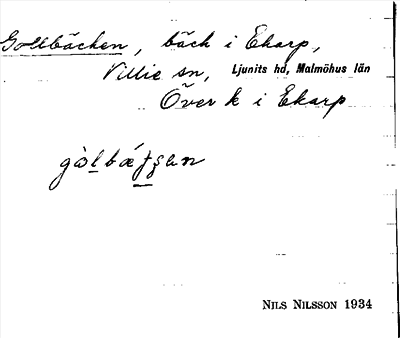 Gollbäcken, bäck i Ekarp,
Villie sn, Ljunits hd, Malmöhus län
Över k i Ekarp
NILS NILSSON 1934